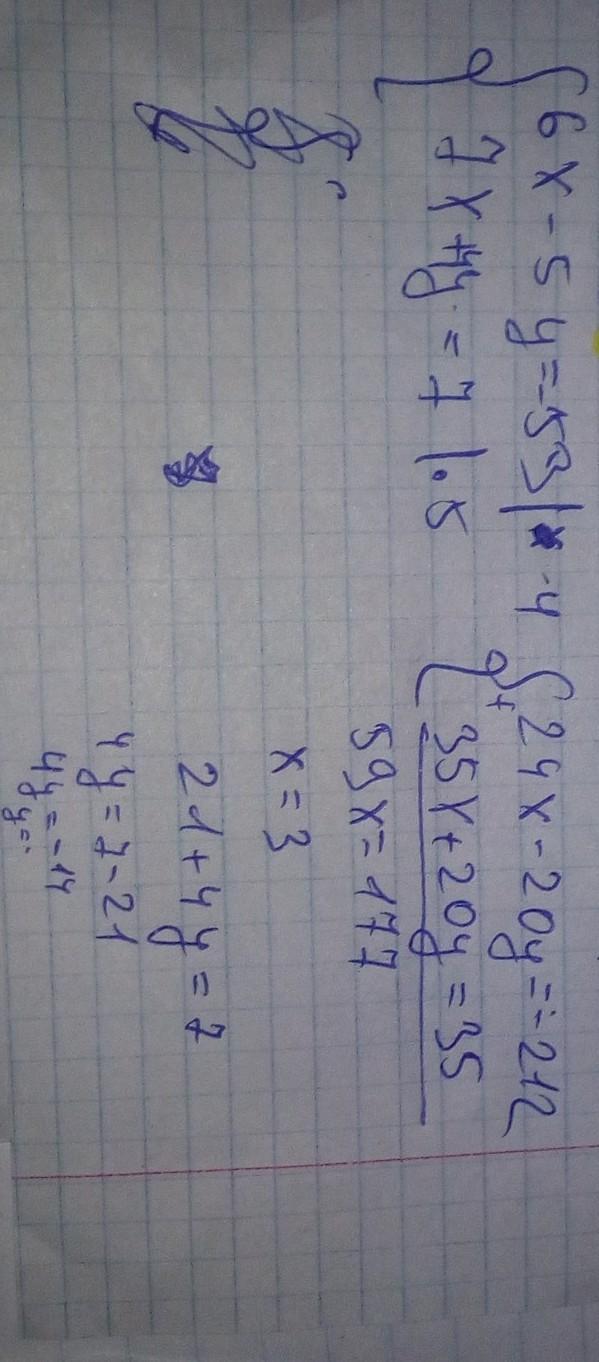 6x-5y=-53 | ·4
7x+4y=7 | ·5
24x-20y=-212
+
35x+20y=35
59x=177
x=3
21+4y=7
4y=7-21
4y=-14
y=